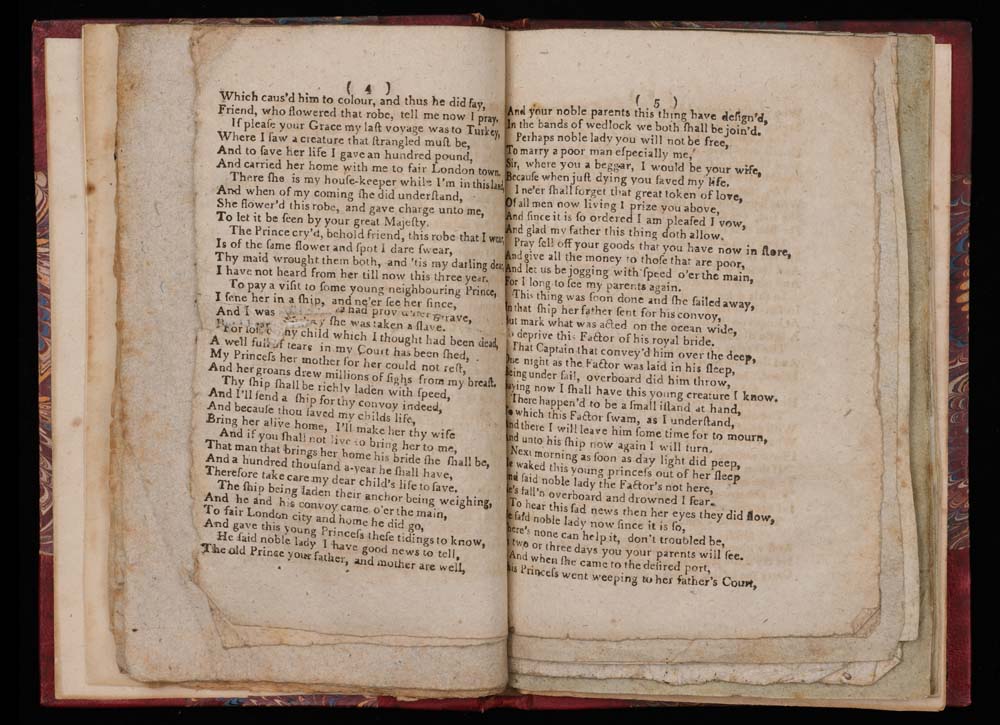 ( 4 )
Which caus'd him to colour, and thus he did ſay,
Friend, who flowered that robe, tell me now I pray.
If pleaſe your Grace my laſt voyage was to Turkey,
Where I ſaw a creature that ſtrangled muſt be,
And to ſave her life I gave an hundred pound,
And carried her home with me to fair London town.
There ſhe is my houſe-keeper while I'm in this land
And when of my coming ſhe did underſtand,
She flower'd this robe, and gave charge unto me,
To let it be ſeen by your great Majeſty.
The Prince cry'd, behold friend, this robe that I wear,
Is of the ſame flower and ſpot I dare ſwear,
Thy maid wrought them both, and 'tis my darling dear,
I have not heard from her till now this three year.
To pay a viſit to ſome young neighbouring Prince,
I ſene her in a ſhip, and ne'er ſee her ſince,
And I was had prov grave,
ſhe was taken a ſlave.
For my child which I thought had been dead,
A well full of tears in my Court has been ſhed,
My Princeſs her mother for her could not reſt,
And her groans drew millions of ſighs from my breaſt.
Thy ſhip ſhall be richly laden with ſpeed,
And I'll ſend a ſhip for thy convoy indeed,
And becauſe thou ſaved my childs life,
Bring her alive home, I'll make her thy wife
And if you ſhall not live to bring her to me,
That man that brings her home his bride ſhe ſhall be,
And a hundred thouſand a-year he ſhall have,
Therefore take care my dear child's life to ſave.
The ſhip being laden their anchor being weighing,
And he and his convoy came o'er the main,
To fair London city and home he did go,
And gave this young Princeſs theſe tidings to know,
He ſaid noble lady I have good news to tell,
The old Prince your father, and mother are well,
( 5 )
And your noble parents this thing have deſign'd,
In the bands of wedlock we both ſhall be join'd.
Perhaps noble lady you will not be free,
To marry a poor man eſpecially me,
Sir, where you a beggar, I would be your wife,
Becauſe when juſt dying you ſaved my life.
I ne'er ſhall forget that great token of love,
Of all men now living I prize you above,
And ſince it is ſo ordered I am pleaſed I vow,
And glad my father this thing doth allow.
Pray ſell off your goods that you have now in ſtore,
And give all the money to thoſe that are poor,
And let us be jogging with ſpeed o'er the main,
For I long to ſee my parents again.
This thing was ſoon done and ſhe ſailed away,
In that ſhip her father ſent for his convoy,
But mark what was acted on the ocean wide,
deprive this Factor of his royal bride.
That Captain that convey'd him over the deep,
One night as the Factor was laid in his ſleep,
Being under ſail, overboard did him throw,
Saying now I ſhall have this young creature I know.
There happen'd to be a ſmall iſland at hand,
To which this Factor ſwam, as I underſtand,
And there I will leave him ſome time for to mourn,
And unto his ſhip now again I will turn.
Next morning as ſoon as day light did peep,
He waked this young princeſs out of her ſleep
And ſaid noble lady the Factor's not here,
He's fall'n overboard and drowned I fear.
To hear this ſad news then her eyes they did flow,
He ſaid noble lady now ſince it is ſo,
there's none can help it, don't troubled be,
two or three days you your parents will ſee.
And when ſhe came to the deſired port,
his Princeſs went weeping to her father's Court,